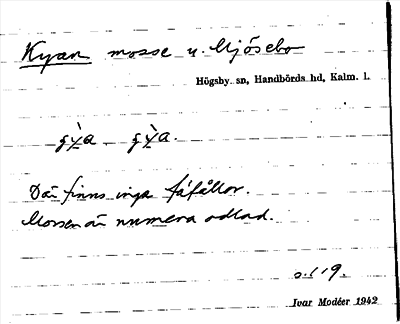 Kyan mosse u. Mjösebo
Högsby. sn, Handbörds hd, Kalm. l.
gỳa gỳa.
Där finns inga fåfållor.
Mossen är numera odlad.
s. 119.
Ivar Modéer 1942